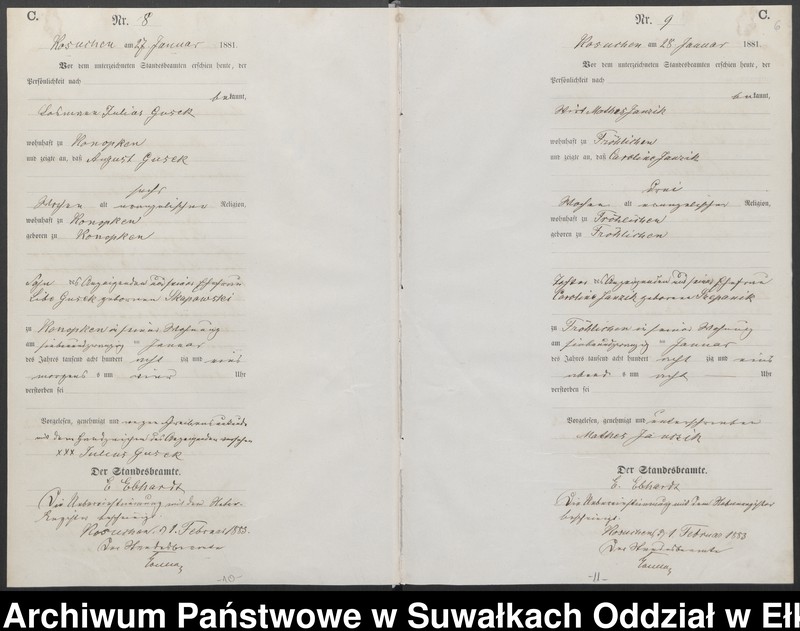 C.
Nr. 8
Kosuchen am 27 Januar 1881.
Vor dem unterzeichneten Standesbeamten erschien heute, der
Persönlichkeit nach
bekannt,
Losmann Julius Gusek
wohnhaft zu Konopken
und zeigte an, daß August Gusek
sechs
Wochen alt evangelischer Religion,
wohnhaft zu Konopken
geboren zu Konopken
Sohn des Anzeigenden und seiner Ehefrau
Gusek geborenen
zu Konopken in seiner Wohnung
am siebenundzwanzig ten Januar
des Jahres tausend acht hundert acht zig und eins
morgens s um eins Uhr
verstorben sei
Vorgelesen, genehmigt und wegen
mit dem Handzeichen des Anzeigenden versehen
xxx Julius Gusek
Der Standesbeamte.
E Ebhardt
Die Uebereinstimmung mit dem Haupt-
Register bescheinigt
Kosuchen, d 1. Februar 1883.
Der Standesbeamte
-10-
Nr. 9
C.
6
Kosuchen am 28 Januar 1881.
Vor dem unterzeichneten Standesbeamten erschien heute, der
Persönlichkeit nach
bekannt,
Wirt Mathes Janzik
wohnhaft zu Fröhlichen
und zeigte an, daß Caroline Janzik
Drei
Wochen alt evangelischer Religion,
wohnhaft zu Fröhlichen
geboren zu Fröhlichen
Tochter des Anzeigenden und seiner Ehefrau
Caroline Janzik geborenen
zu Fröhlichen in seiner Wohnung
am siebenundzwanzig ten Januar
des Jahres tausend acht hundert acht zig und eins
abends s um acht Uhr
verstorben sei
Vorgelesen, genehmigt und unterschrieben
Mathes Janzik
Der Standesbeamte.
E. Ebhardt
Die Uebereinstimmung mit dem Hauptregister
bescheinigt.
Kosuchen, d 1 Februar 1883
Der Standesbeamte
-11-
Archiwum Państwowe w Suwałkach Oddział w Ełk